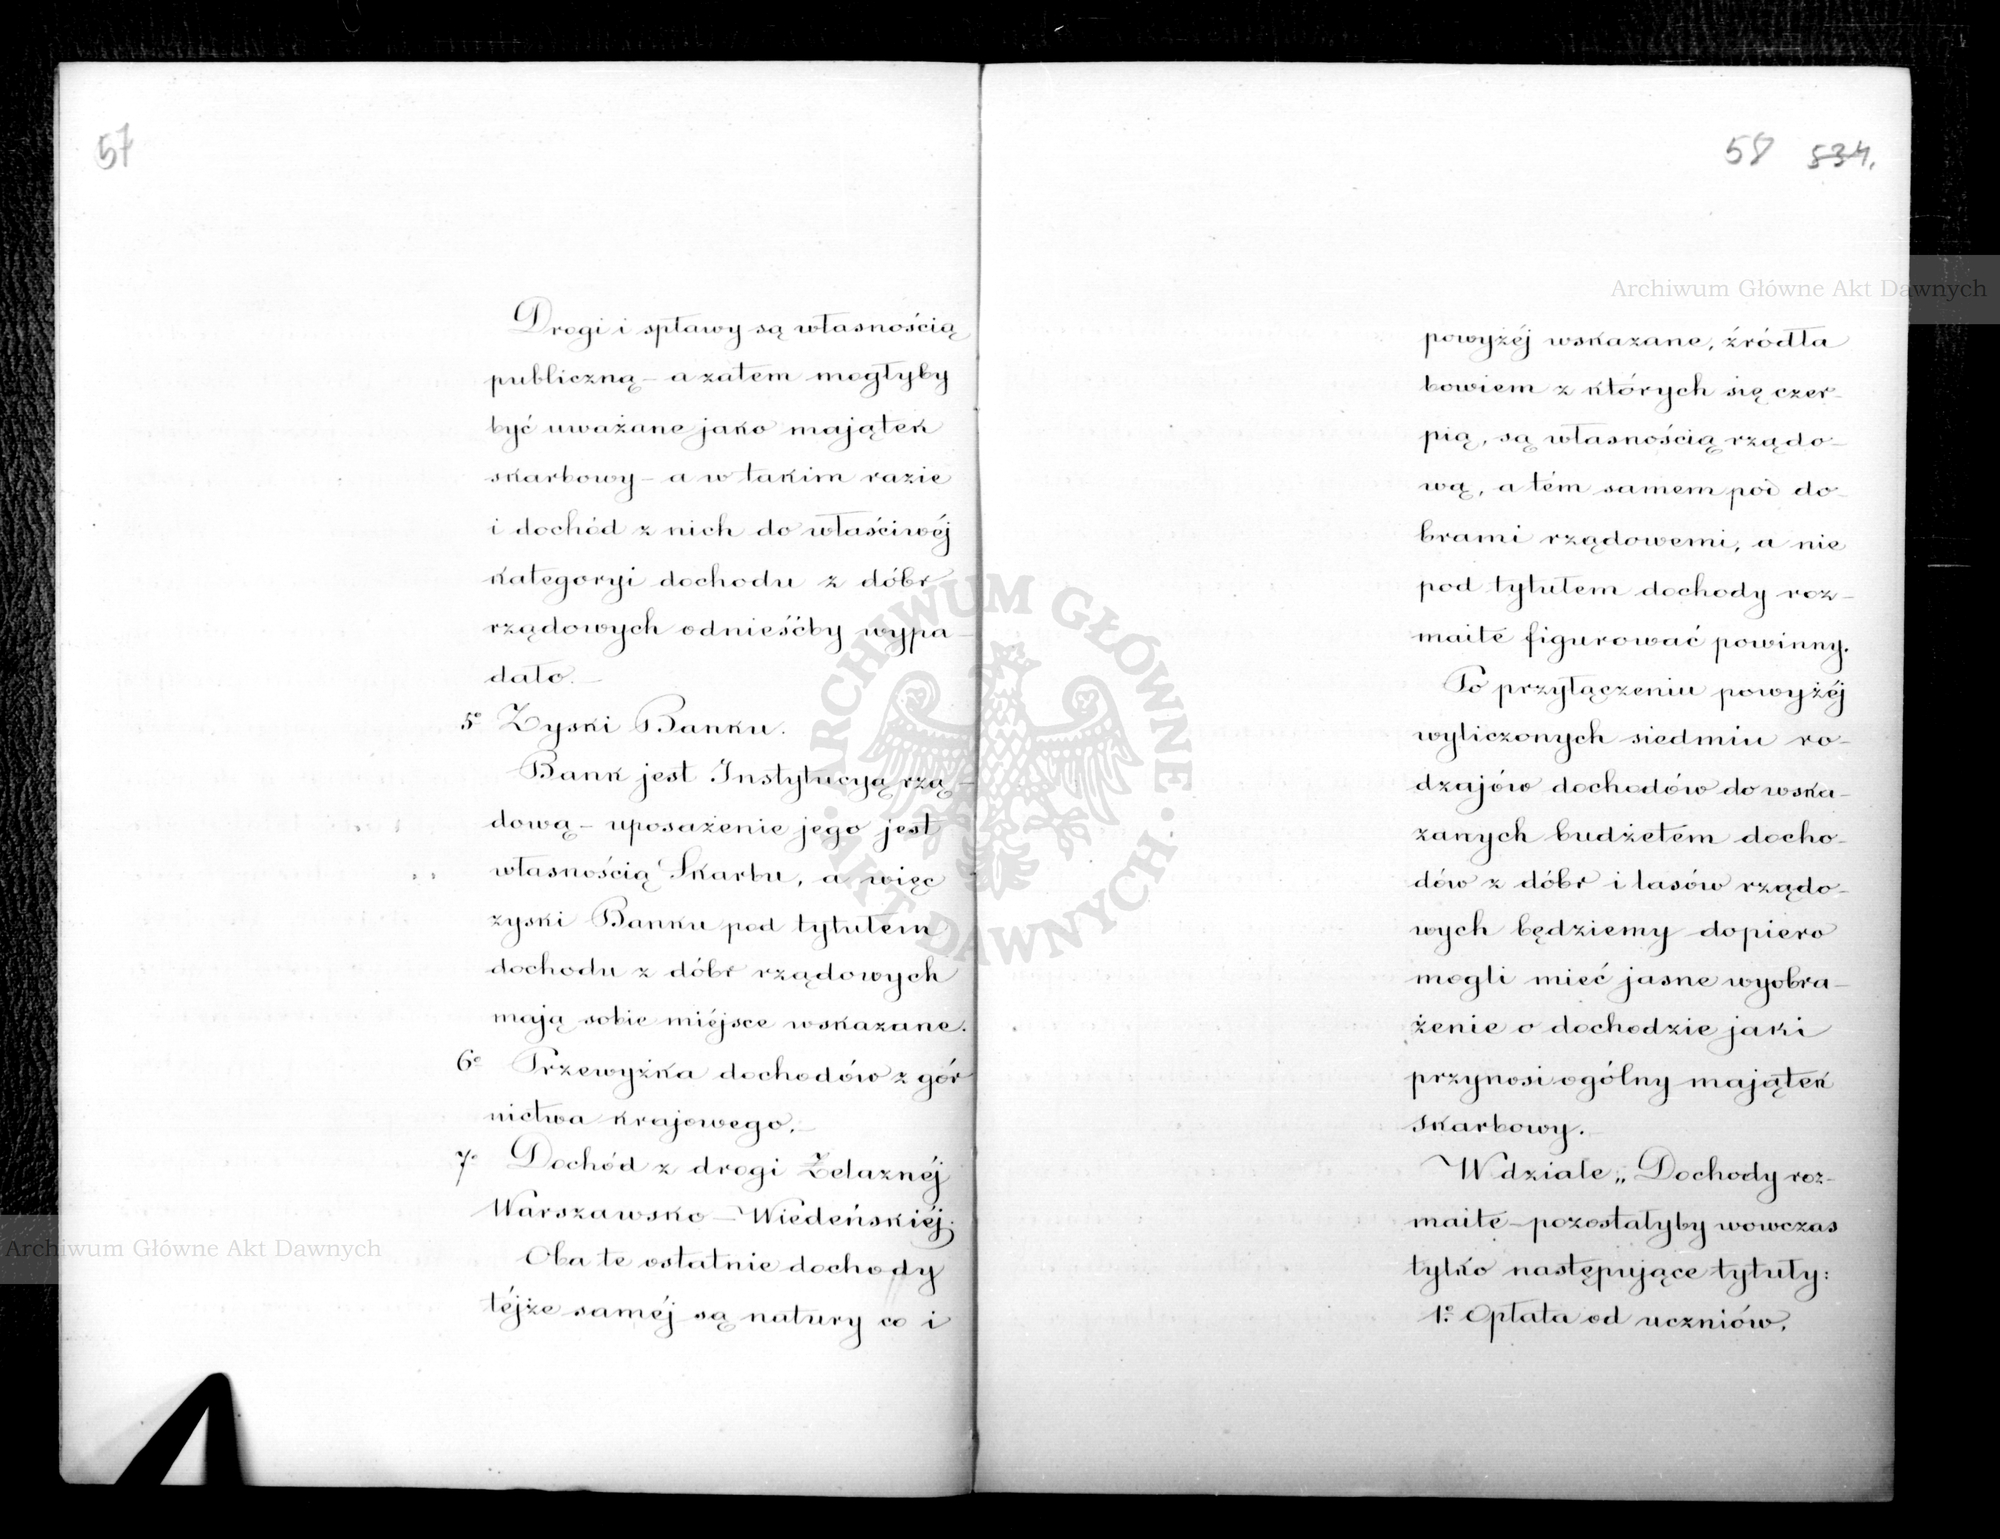 57
Drogi i spławy są własnością
publiczną – a zatem mogłyby
być uważane jako majątek
skarbowy – a w takim razie
i dochód z nich do właściwéj
kategoryi dochodu z dóbr
rządowych odnieśćby wypa–
dało. –
5o Zyski Banku.
Bank jest Instytucyą rzą–
dową – uposażenie jego jest
własnością Skarbu, a więc
zyski Banku pod tytułem
dochodu z dóbr rządowych
mają sobie miéjsce wskazane.
6o Przewyżka dochodów z gór
nictwa krajowego. –
7o Dochód z drogi Żelaznéj
Warszawsko – Wiedeńskiéj.
Oba te ostatnie dochody
téjże saméj są natury co i
58 534.
powyżéj wskazane, źródła
bowiem z których się czer–
pią, są własnością rządo–
wą, a tém samem pod do–
brami rządowemi, a nie
pod tytułem dochody roz–
maite figurować powinny.
Po przyłączeniu powyżéj
wyliczonych siedmiu ro–
dzajów dochodów do wska–
zanych budżetem docho–
dów z dóbr i lasów rządo–
wych będziemy dopiero
mogli mieć jasne wyobra–
żenie o dochodzie jaki
przynosi ogólny majątek
skarbowy.
W dziale „Dochody roz–
maite – pozostałyby wowczas
tylko następujące tytuły:
1o Opłata od uczniów.
Archiwum Główne Akt Dawnych
ARCHIWUM GŁÓWNE AKT DAWNYCH
Archiwum Główne Akt Dawnych